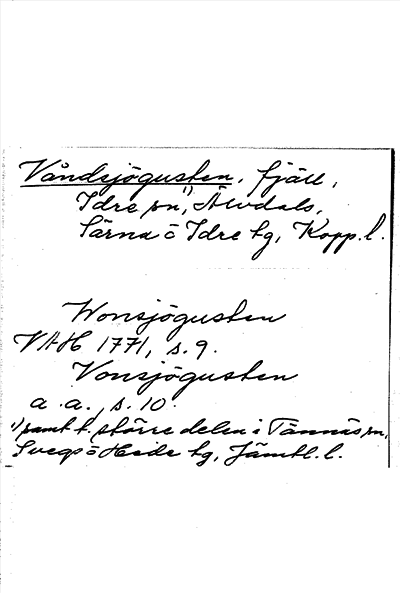 Våndsjögusten, fjäll,
Idre sn,¹⁾ Älvdals,
Särna o Idre tg, Kopp. l.
Wonsjögusten
VAH 1771, s. 9.
Vonsjögusten
a. a., s. 10.
¹⁾ samt t. större delen i Tännäs sn,
Svegs o Hede tg, Jämtl. l.